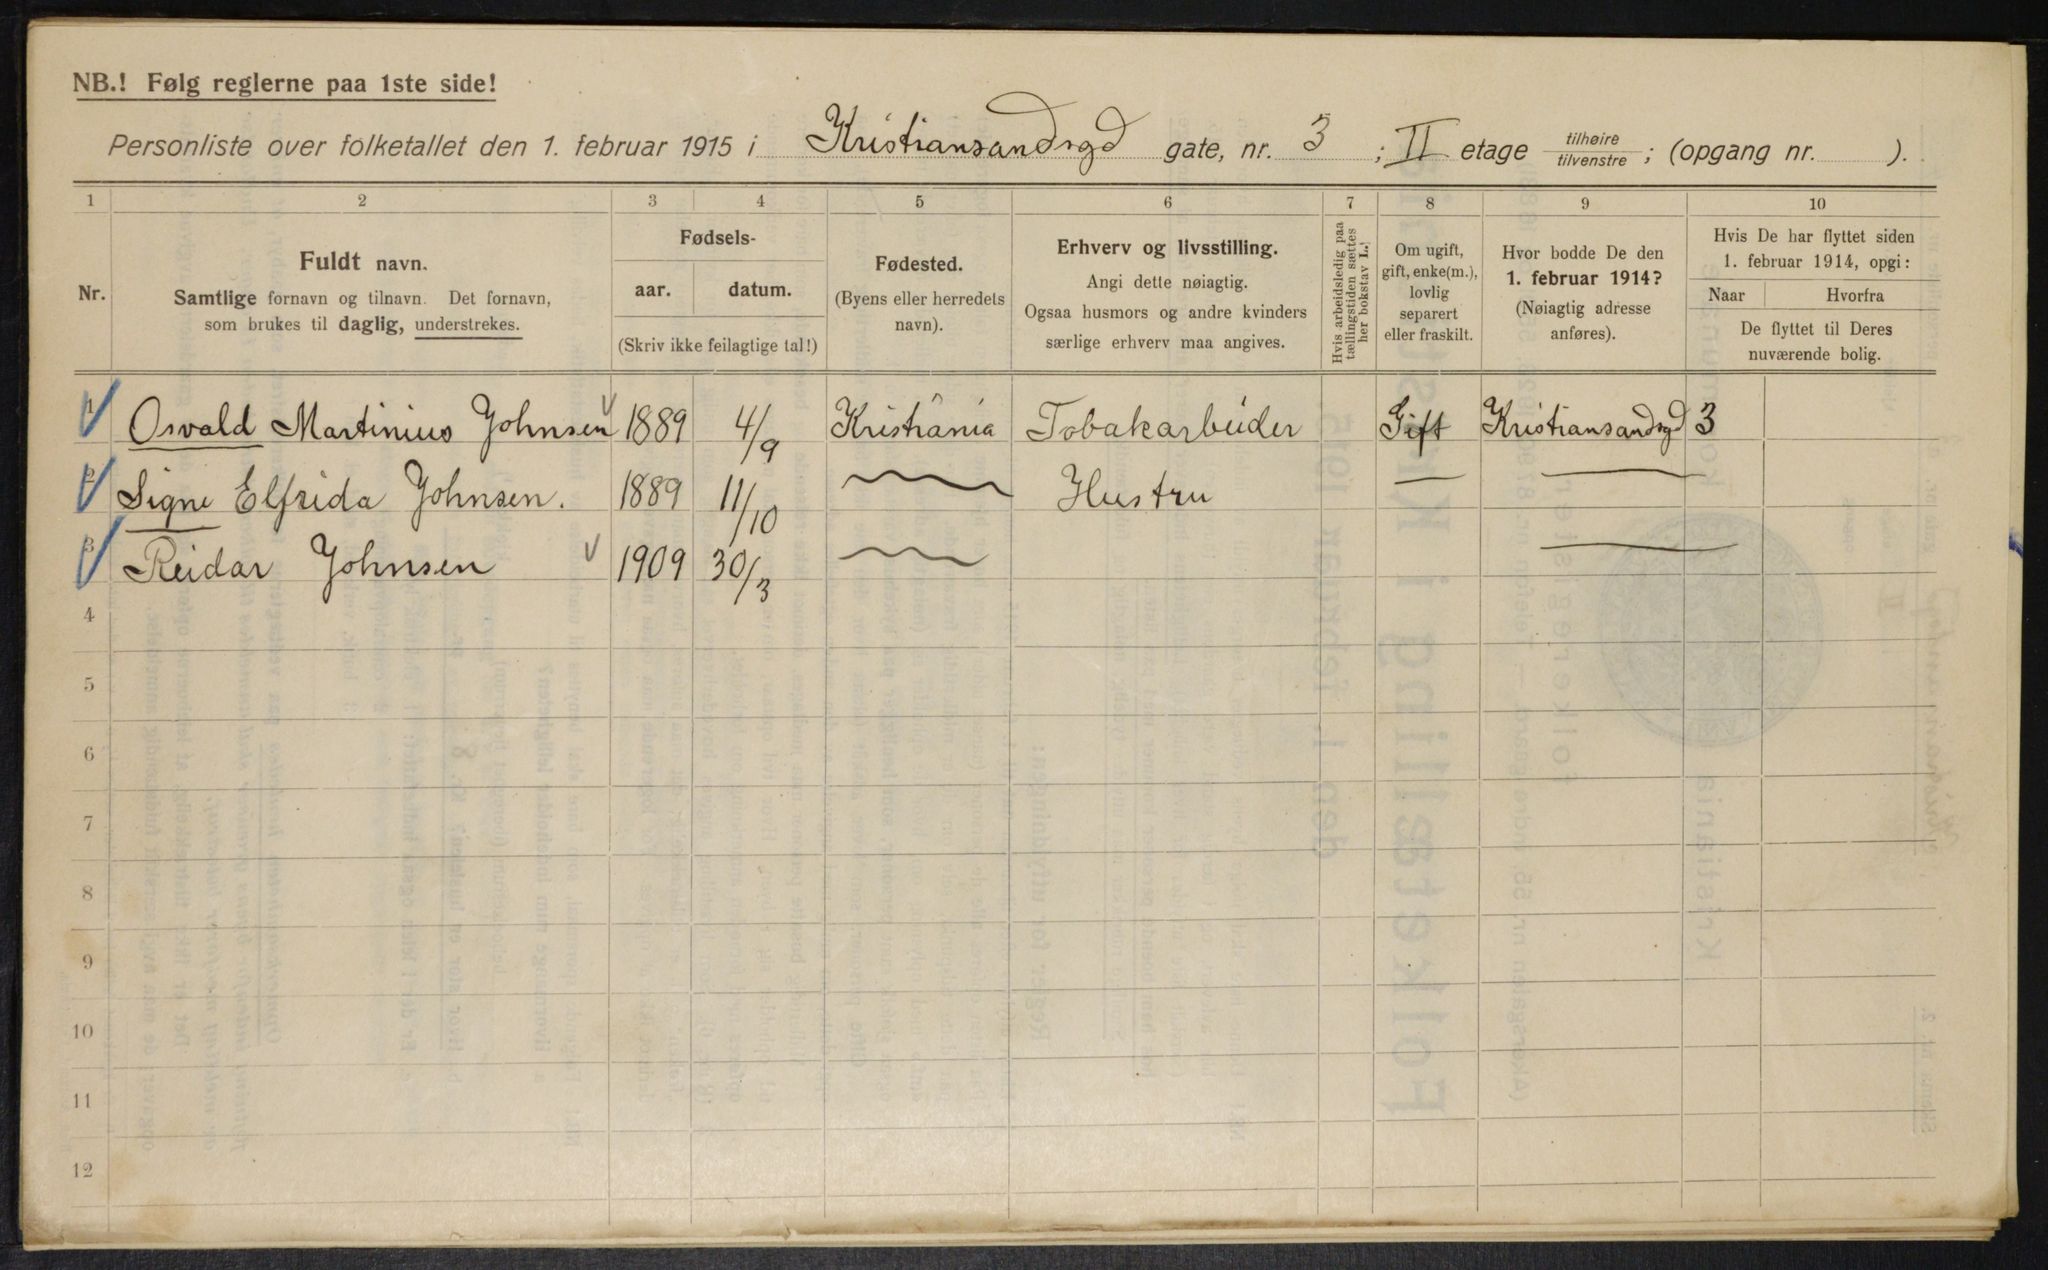 NB.! Følg reglerne paa 1ste side!
Personliste over folketallet den 1. februar 1915 i Kristiansandsgd gate, nr. 3 ; II etage tilhøire tilvenstre ; (opgang nr. ).
1 2 3 4 5 6 7 8 9 10
Nr.
Fuldt navn.
Samtlige fornavn og tilnavn. Det fornavn,
som brukes til daglig, understrekes.
Fødsels-
aar. datum.
(Skriv ikke feilagtige tal!)
Fødested.
(Byens eller herredets
navn).
Erhverv og livsstilling.
Angi dette nøiagtig.
Ogsaa husmors og andre kvinders
særlige erhverv maa angives.
Hvis arbeidsledig paa
tællingstiden sættes
her bokstav L.
Om ugift,
gift, enke(m.),
lovlig
separert
eller fraskilt.
Hvor bodde De den
1. februar 1914?
(Nøiagtig adresse
anføres).
Hvis De har flyttet siden
1. februar 1914, opgi:
Naar Hvorfra
De flyttet til Deres
nuværende bolig.
1 Osvald Martinius Johnsen 1889 4/9 Kristiania Tobakarbeider Gift Kristiansandsgd 3
2 Signe Elfrida Johnsen. 1889 11/10 Hustru
3 Reidar Johnsen 1909 30/3
4
5
6
7
8
9
10
11
12